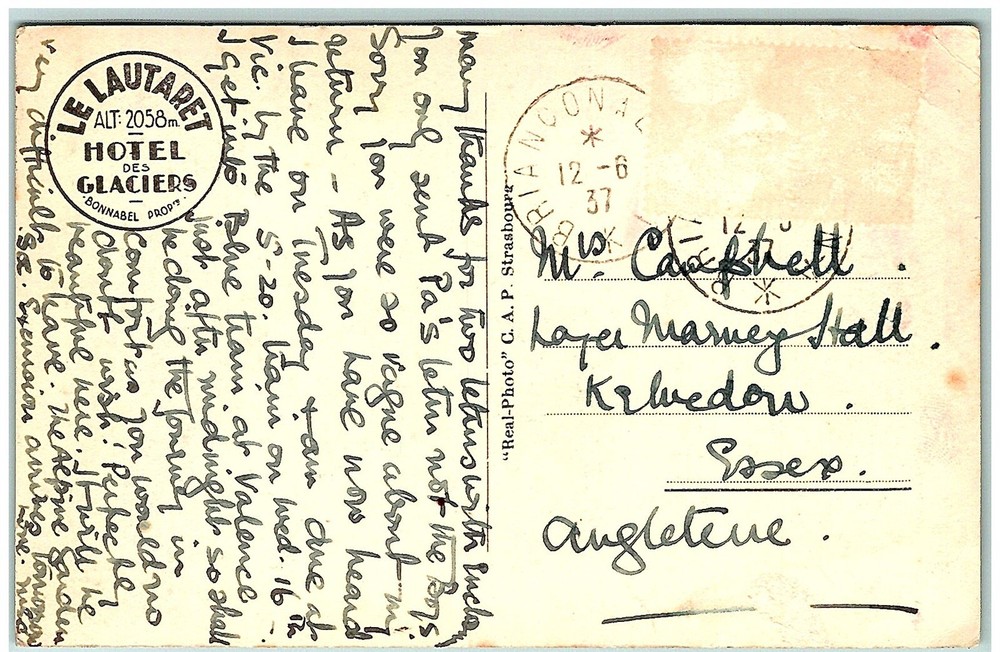 LE LAUTARET
ALT: 2058m.
HOTEL
DES
GLACIERS
BONNABEL PROP.
many thanks for two letters with
You only sent Pa's letter not the Boys
Sorry you were so vague about my
return - As you have now heard
I leave on Tuesday + am due at
Vic. by the 5-20. train on Wed. 16th
I get into Blue train at Valence -
just after midnight so shall
be doing the journey in
comfort as you would no
doubt wish! Perfectly
beautiful here. It will be
very difficult to leave. The Alpine Garden
Soc. Excursion arrives tomorrow
"Real-Photo" C. A. P. Strasbourg
BRIANCON
12 -6
37
12
Mrs. Campbell.
Layer Marney Hall.
Kelvedon.
Essex.
Angleterre.